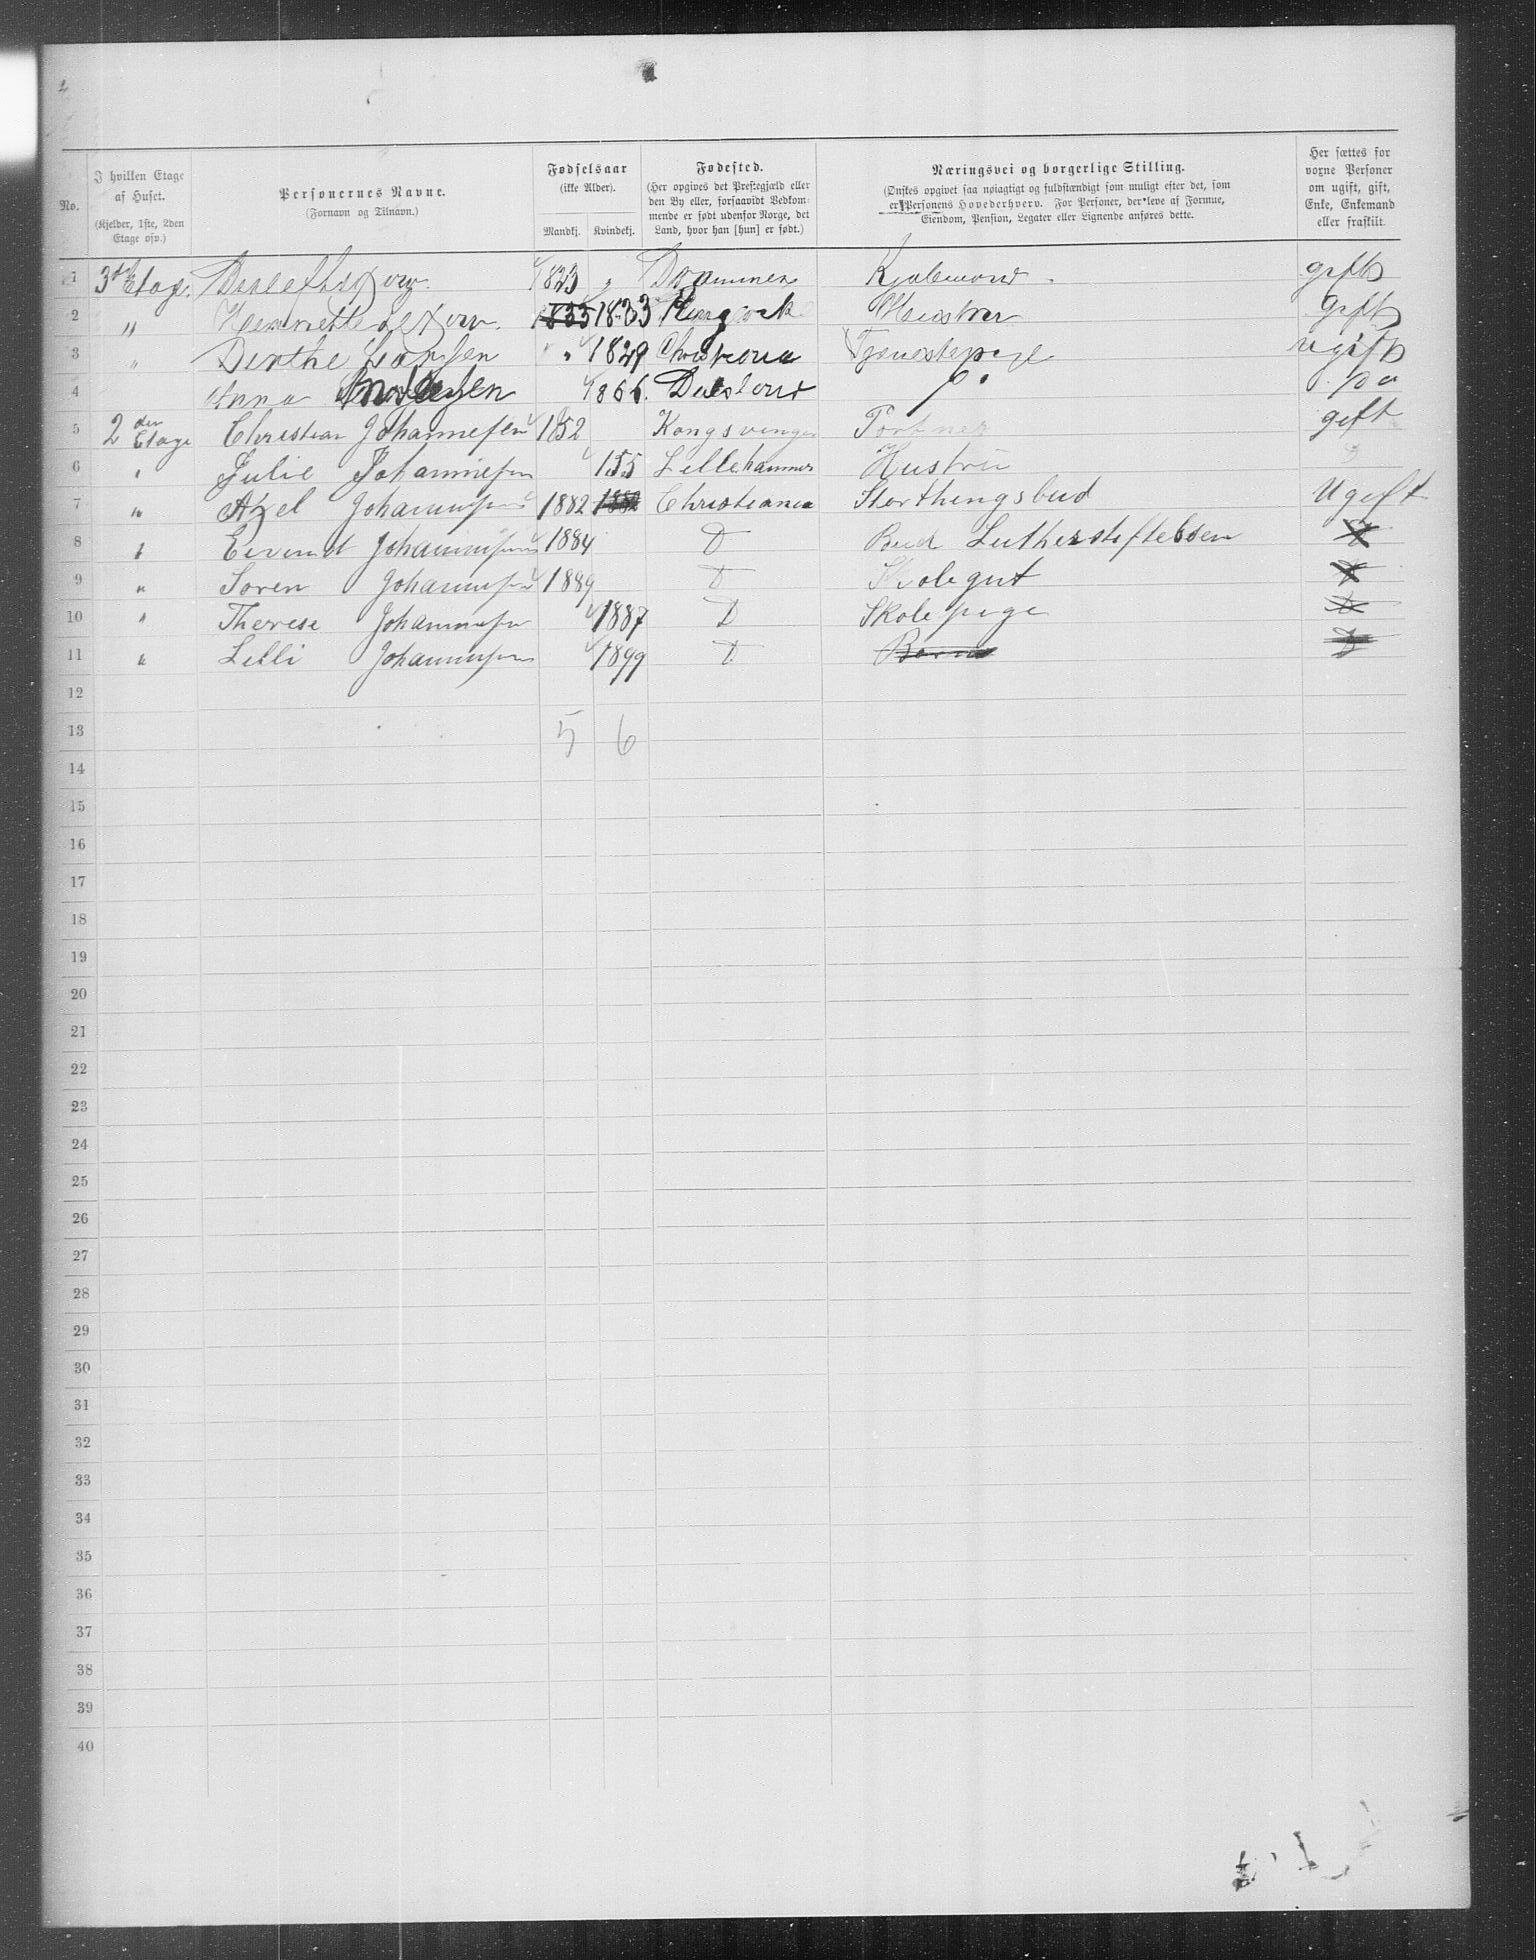 No.
I hvilken Etage af Huset.
(Kjelder, 1ste, 2den Etage osv.)
Personernes Navne.
(Fornavn og Tilnavn.)
Fødselsaar
(ikke Alder).
Mandkj. Kvindekj.
Fødested.
(Her opgives det Prestegjæld eller den By eller, forsaavidt Vedkommende er født udenfor Norge, det Land, hvor han [hun] er født.)
Næringsvei og borgerlige Stilling.
(Ønskes opgivet saa nøiagtigt og fuldstændigt som muligt efter det, som er Personens Hovederhverv. For Personer, der leve af Formue, Eiendom, Pension, Legater eller Lignende anføres dette.
Her sættes for voxne Personer om ugift, gift, Enke, Enkemand eller fraskilt.
1 3die Etage 1823 " Drammen gift
2 " Henriette 1835 1833 Hustru gift
3 " Berthe Larssen " 1829 Christiania Tjenestepige ugift
4 Anna 1866. do do
5 2den Etage Christian Johannesen 1852 Kongsvinger Portner gift
6 " Julie Johannesen 155 Lillehammer Hustru
7 " Axel Johannesen 1882 1882 Christiania Storthingsbud Ugift
8 " Eivind Johannesen 1884 D Bud Lutherstiftelsen D
9 " Soren Johannesen 1889 D Skolegut D
10 " Therese Johannesen 1887 D Skolepige D
11 " Lilli Johannesen 1899 D Barn D
12
13 5 6
14
15
16
17
18
19
20
21
22
23
24
25
26
27
28
29
30
31
32
33
34
35
36
37
38
39
40